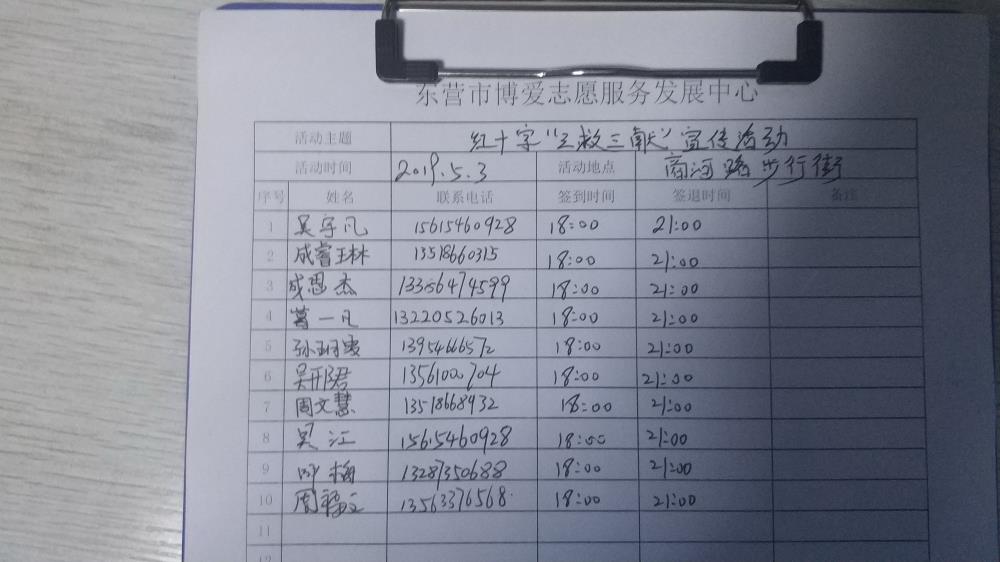 东营市博爱志愿服务发展中心
活动主题 红十字“三救三献”宣传活动
活动时间 2019.5.3 活动地点 商河路步行街
序号 姓名 联系电话 签到时间 签退时间 备注
1 吴宇凡 15615460928 18:00 21:00
2 成睿琳 13518660315 18:00 21:00
3 成恩杰 18:00 21:00
4 葛一凡 13220526013 18:00 21:00
5 18:00 21:00
6 18:00 21:00
7 周文慧 13518668932 18:00 21:00
8 吴江 15615460928 18:00 21:00
9 13287350688 18:00 21:00
10 13563376568 18:00 21:00
11